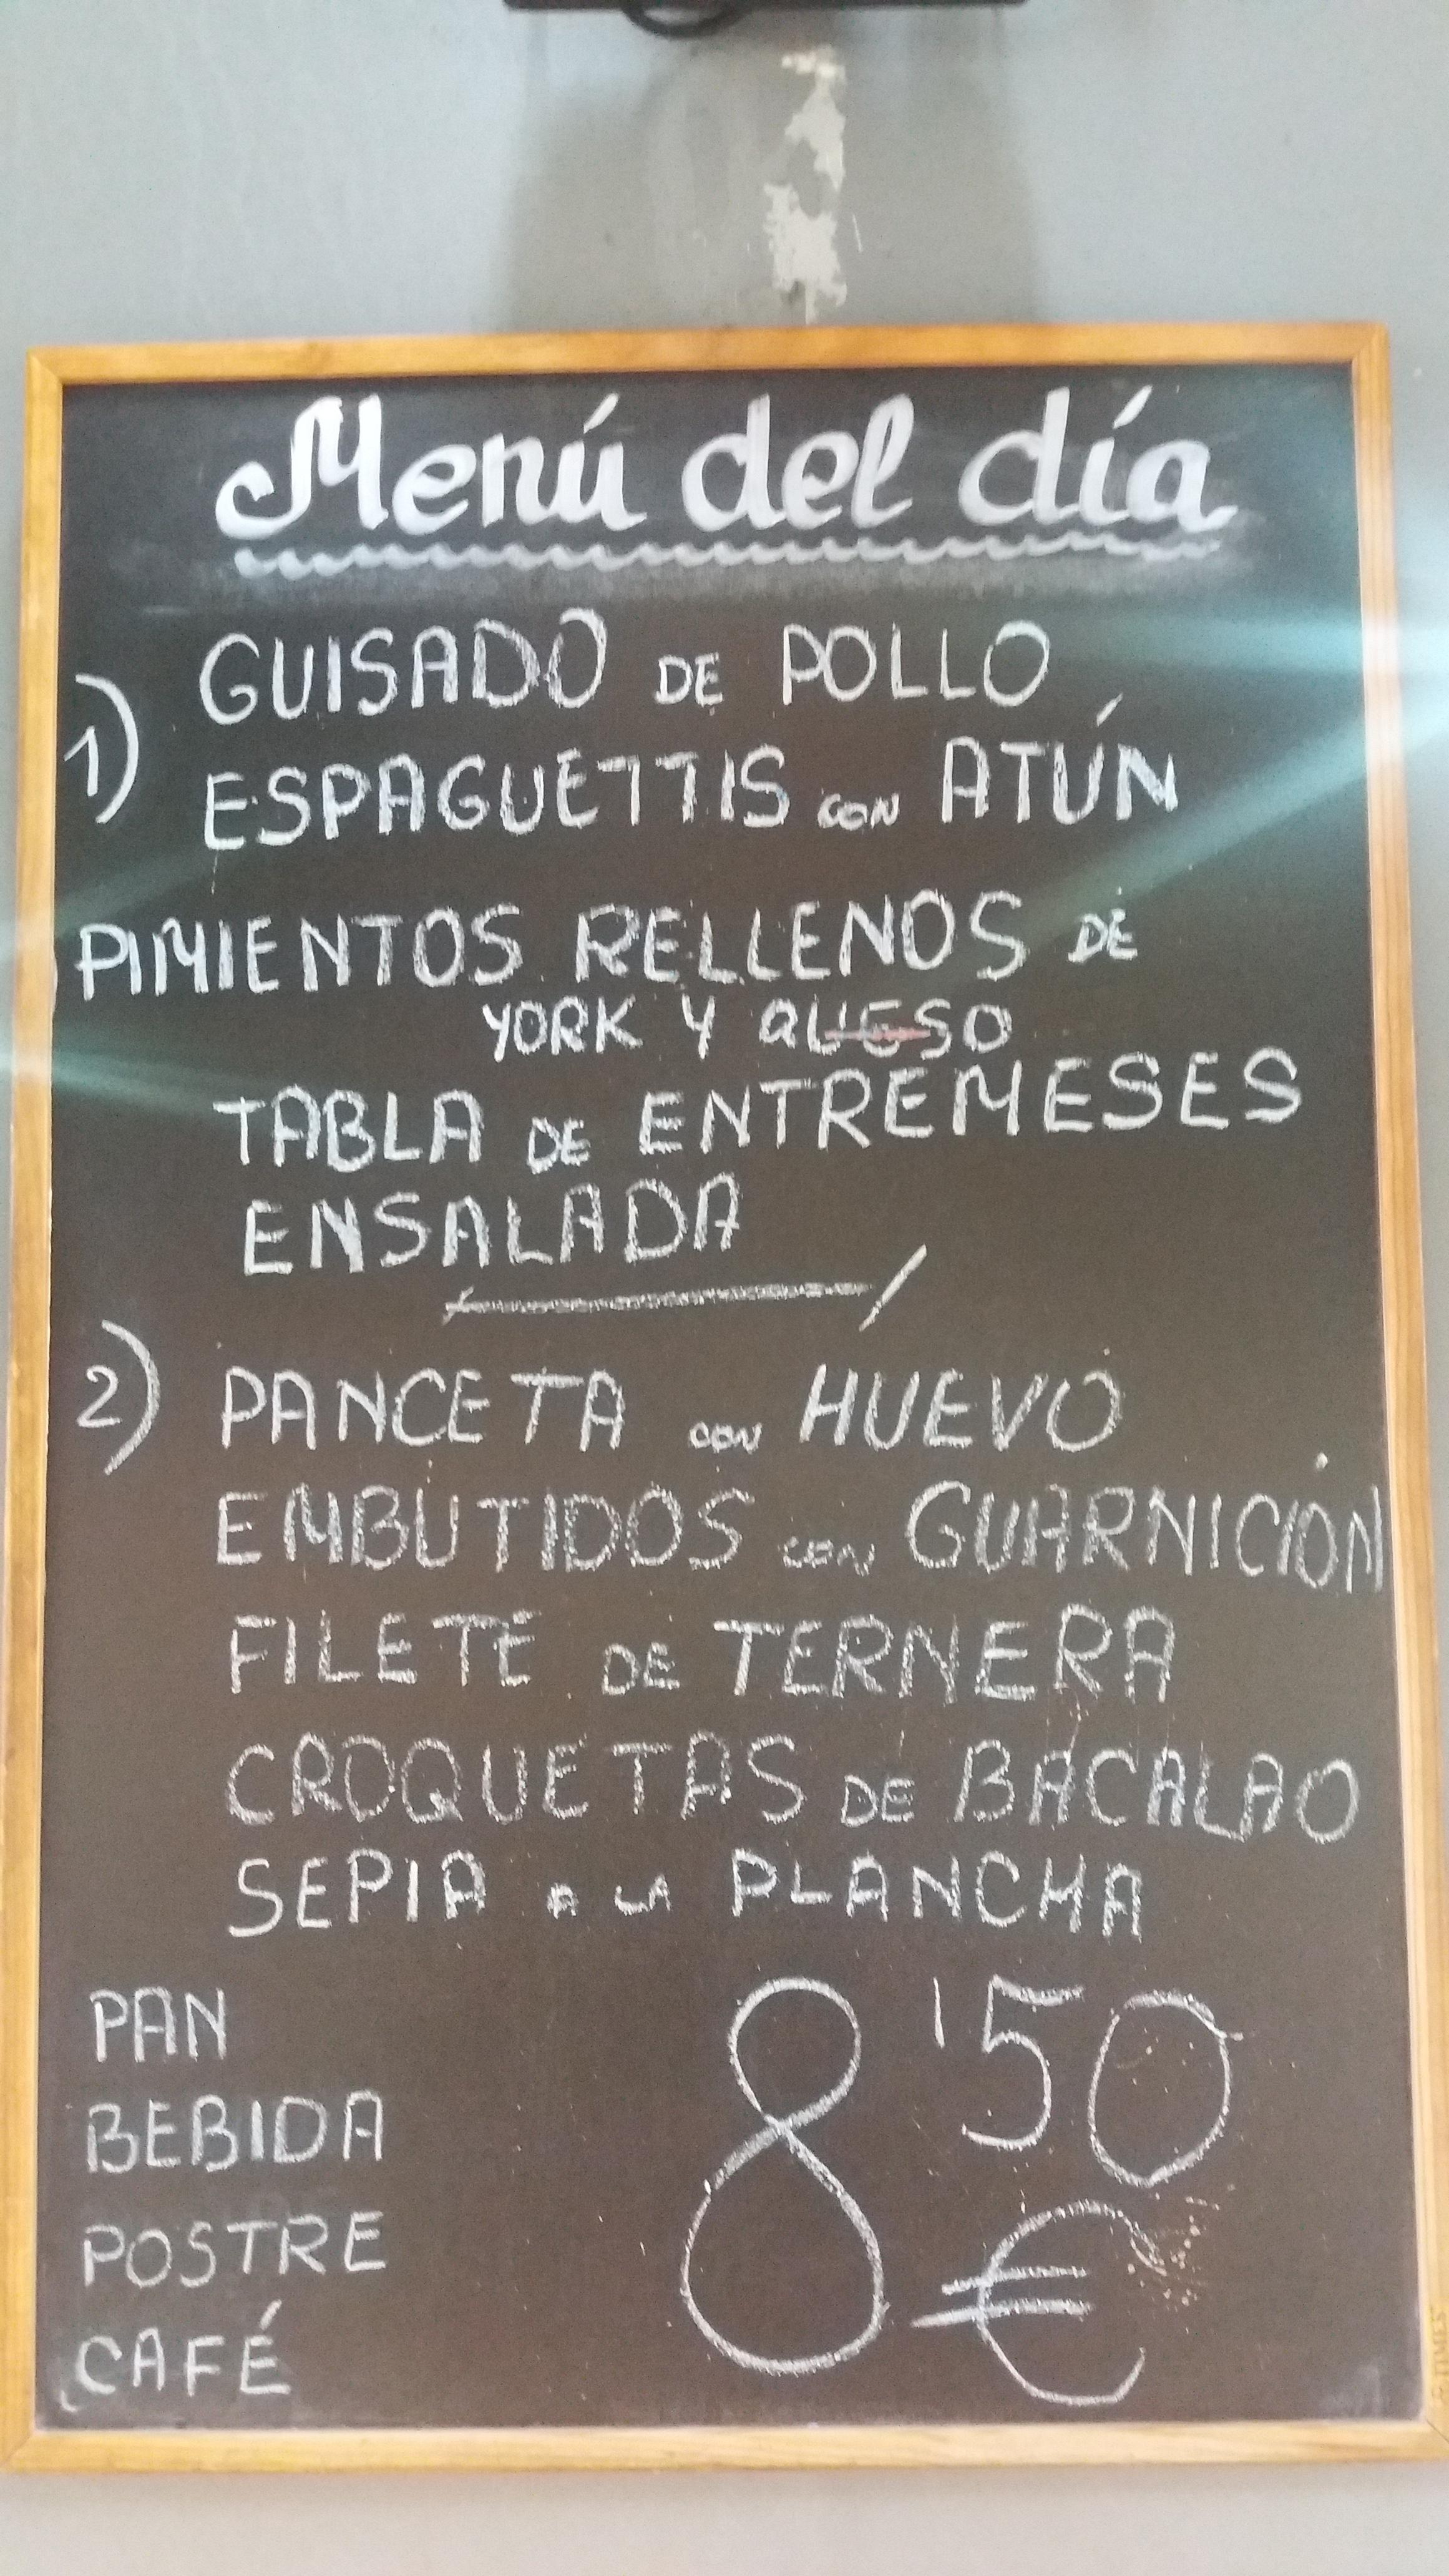 Menú del día
1) GUISADO DE POLLO
ESPAGUETTIS CON ATÚN
PIMIENTOS RELLENOS DE
YORK Y QUESO
TABLA DE ENTREMESES
ENSALADA
2) PANCETA CON HUEVO
EMBUTIDOS CON GUARNICIÓN
FILETE DE TERNERA
CROQUETAS DE BACALAO
SEPIA A LA PLANCHA
PAN
BEBIDA
POSTRE
CAFÉ
8'50
€